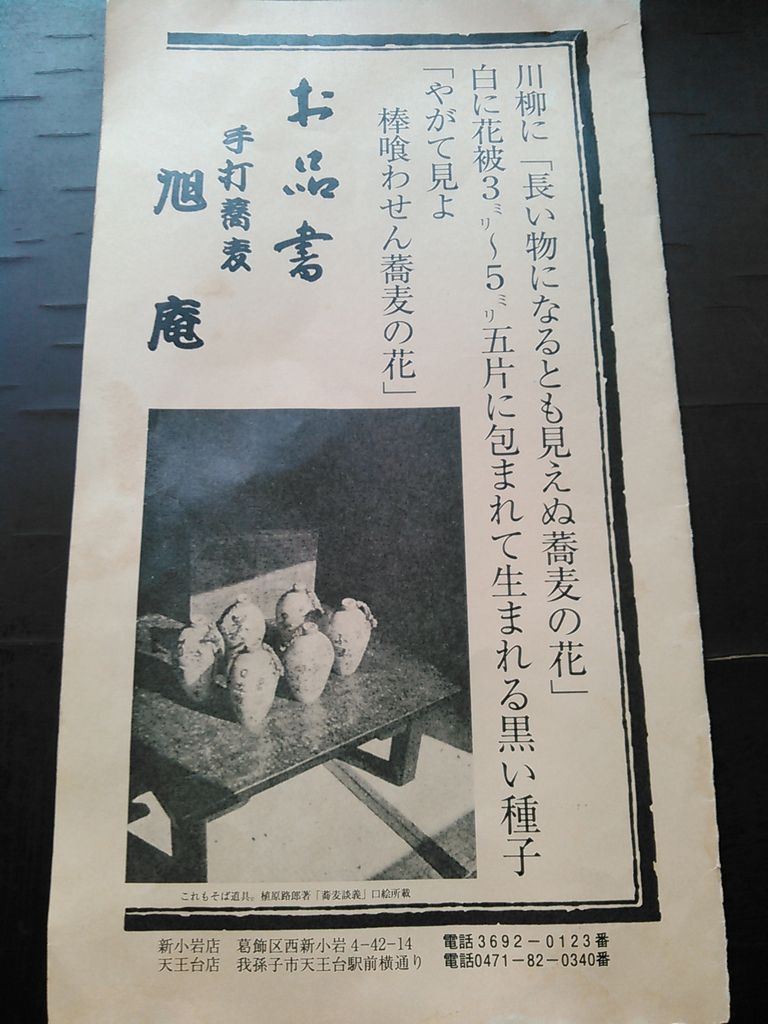 川柳に「長い物になるとも見えぬ蕎麦の花」
白に花被3ミリ～5ミリ五片に包まれて生まれる黒い種子
「やがて見よ
棒喰わせん蕎麦の花」
お品書
手打蕎麦
旭庵
これもそば道具。植原路郎著「蕎麦談義」口絵所載
新小岩店 葛飾区西新小岩4-42-14 電話3692-0123番
天王台店 我孫子市天王台駅前横通り 電話0471-82-0340番